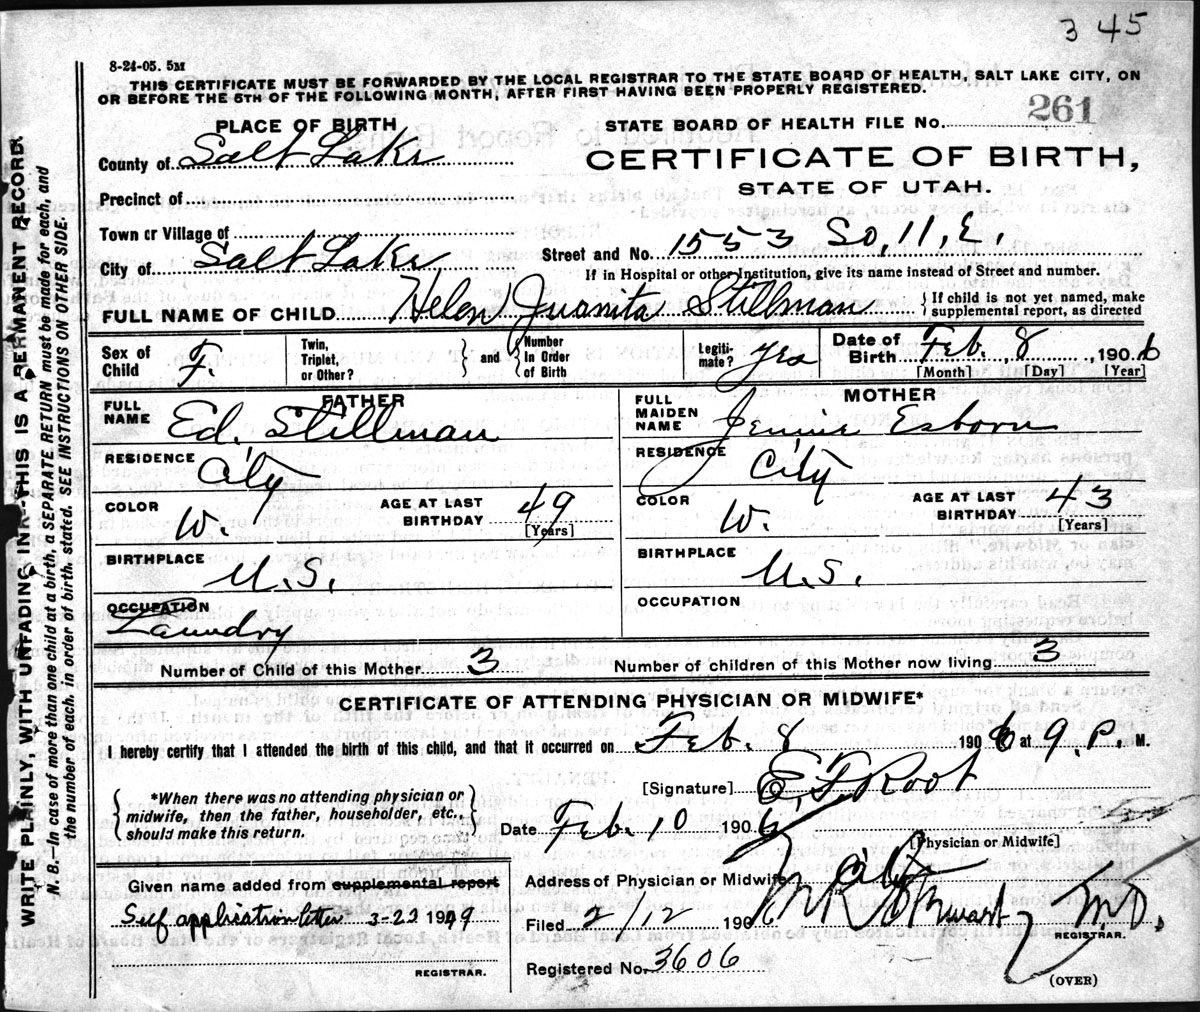 3 45
8-24-05. 5M
THIS CERTIFICATE MUST BE FORWARDED BY THE LOCAL REGISTRAR TO THE STATE BOARD OF HEALTH, SALT LAKE CITY, ON
OR BEFORE THE 5TH OF THE FOLLOWING MONTH, AFTER FIRST HAVING BEEN PROPERLY REGISTERED.
PLACE OF BIRTH
STATE BOARD OF HEALTH FILE No. 261
County of Salt Lake
CERTIFICATE OF BIRTH,
STATE OF UTAH.
Precinct of
Town or Village of
Street and No. 1553 So, 11, E.
City of Salt Lake
If in Hospital or other Institution, give its name instead of Street and number.
FULL NAME OF CHILD Helen Juanita Stillman { If child is not yet named, make
supplemental report, as directed
Sex of Child F.
Twin, Triplet, or Other? } and { Number In Order of Birth
Legiti-mate? Yes
Date of Birth Feb. 8, 1906
[Month] [Day] [Year]
FATHER
MOTHER
FULL NAME Ed. Stillman
FULL MAIDEN NAME Jennie Esborn
RESIDENCE City
RESIDENCE City
COLOR W.
AGE AT LAST BIRTHDAY 49 [Years]
COLOR W.
AGE AT LAST BIRTHDAY 43 [Years]
BIRTHPLACE U.S.
BIRTHPLACE U.S.
OCCUPATION Laundry
OCCUPATION
Number of Child of this Mother 3
Number of children of this Mother now living 3
CERTIFICATE OF ATTENDING PHYSICIAN OR MIDWIFE*
I hereby certify that I attended the birth of this child, and that it occurred on Feb. 8 1906 at 9. P. M.
{ *When there was no attending physician or
midwife, then the father, householder, etc.,
should make this return. }
[Signature] E. F Root
Date Feb. 10 1906
[Physician or Midwife]
Address of Physician or Midwife City
Given name added from supplemental report
Self application letter 3-23 1949
REGISTRAR.
Filed 2/12 190 M.D.
REGISTRAR.
Registered No. 3606
(OVER)
WRITE PLAINLY, WITH UNFADING INK--THIS IS A PERMANENT RECORD.
N. B.—In case of more than one child at a birth, a SEPARATE RETURN must be made for each, and
the number of each, in order of birth, stated. SEE INSTRUCTIONS ON OTHER SIDE.